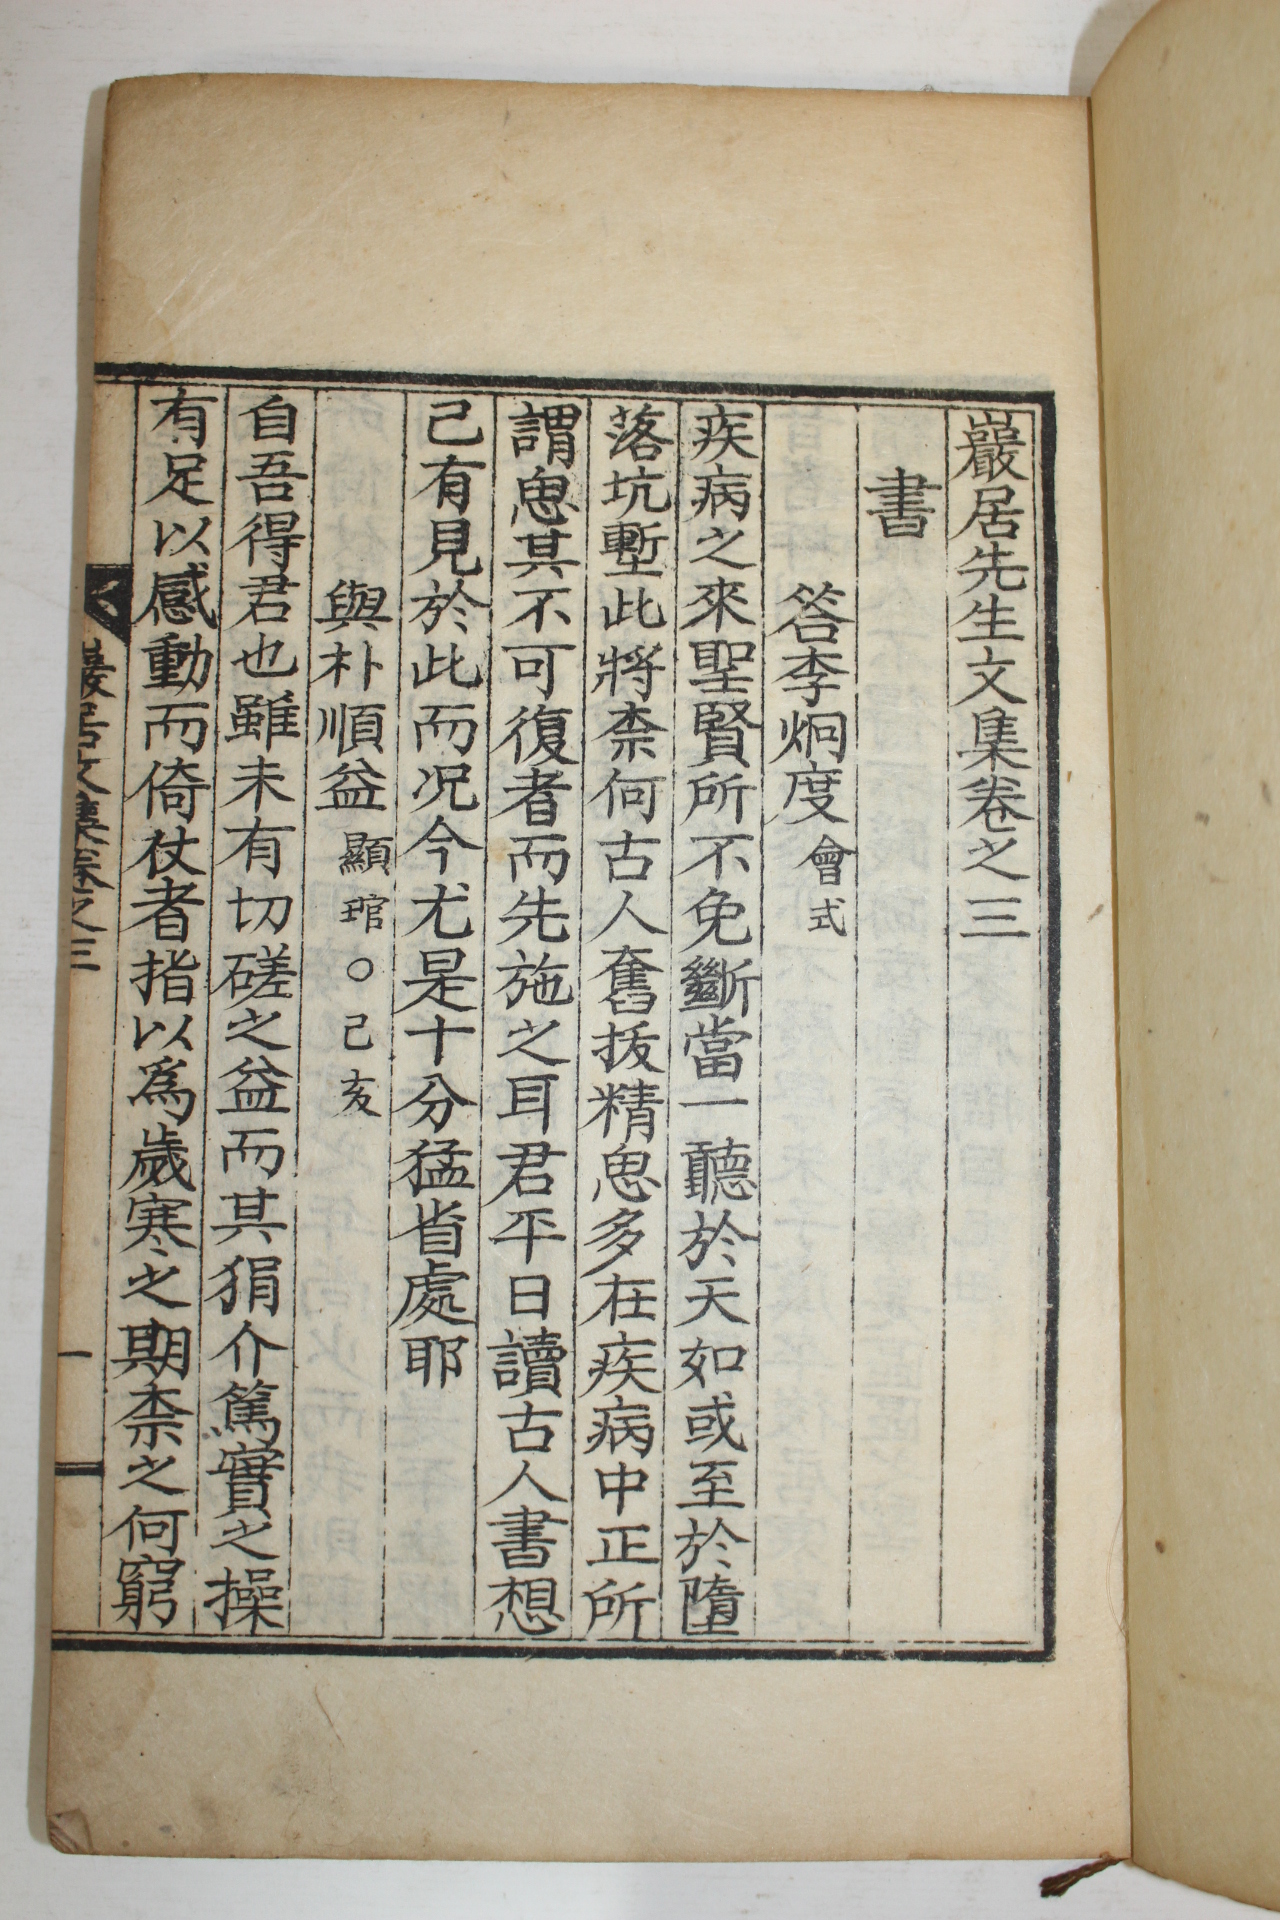 巖居先生文集卷之三
書
答李炯度會式
疾病之來聖賢所不免斷當一聽於天如或至於墮
落坑塹此將柰何古人奮拔精思多在疾病中正所
謂思其不可復者而先施之耳君平日讀古人書想
己有見於此而况今尤是十分猛省處耶
與朴順益顯琯○己亥
自吾得君也雖未有切磋之益而其狷介篤實之操
有足以感動而倚仗者指以爲歲寒之期柰之何窮
巖居文集卷之三
一